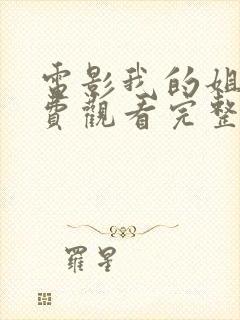 電影我的姐
費觀看完整
羅星